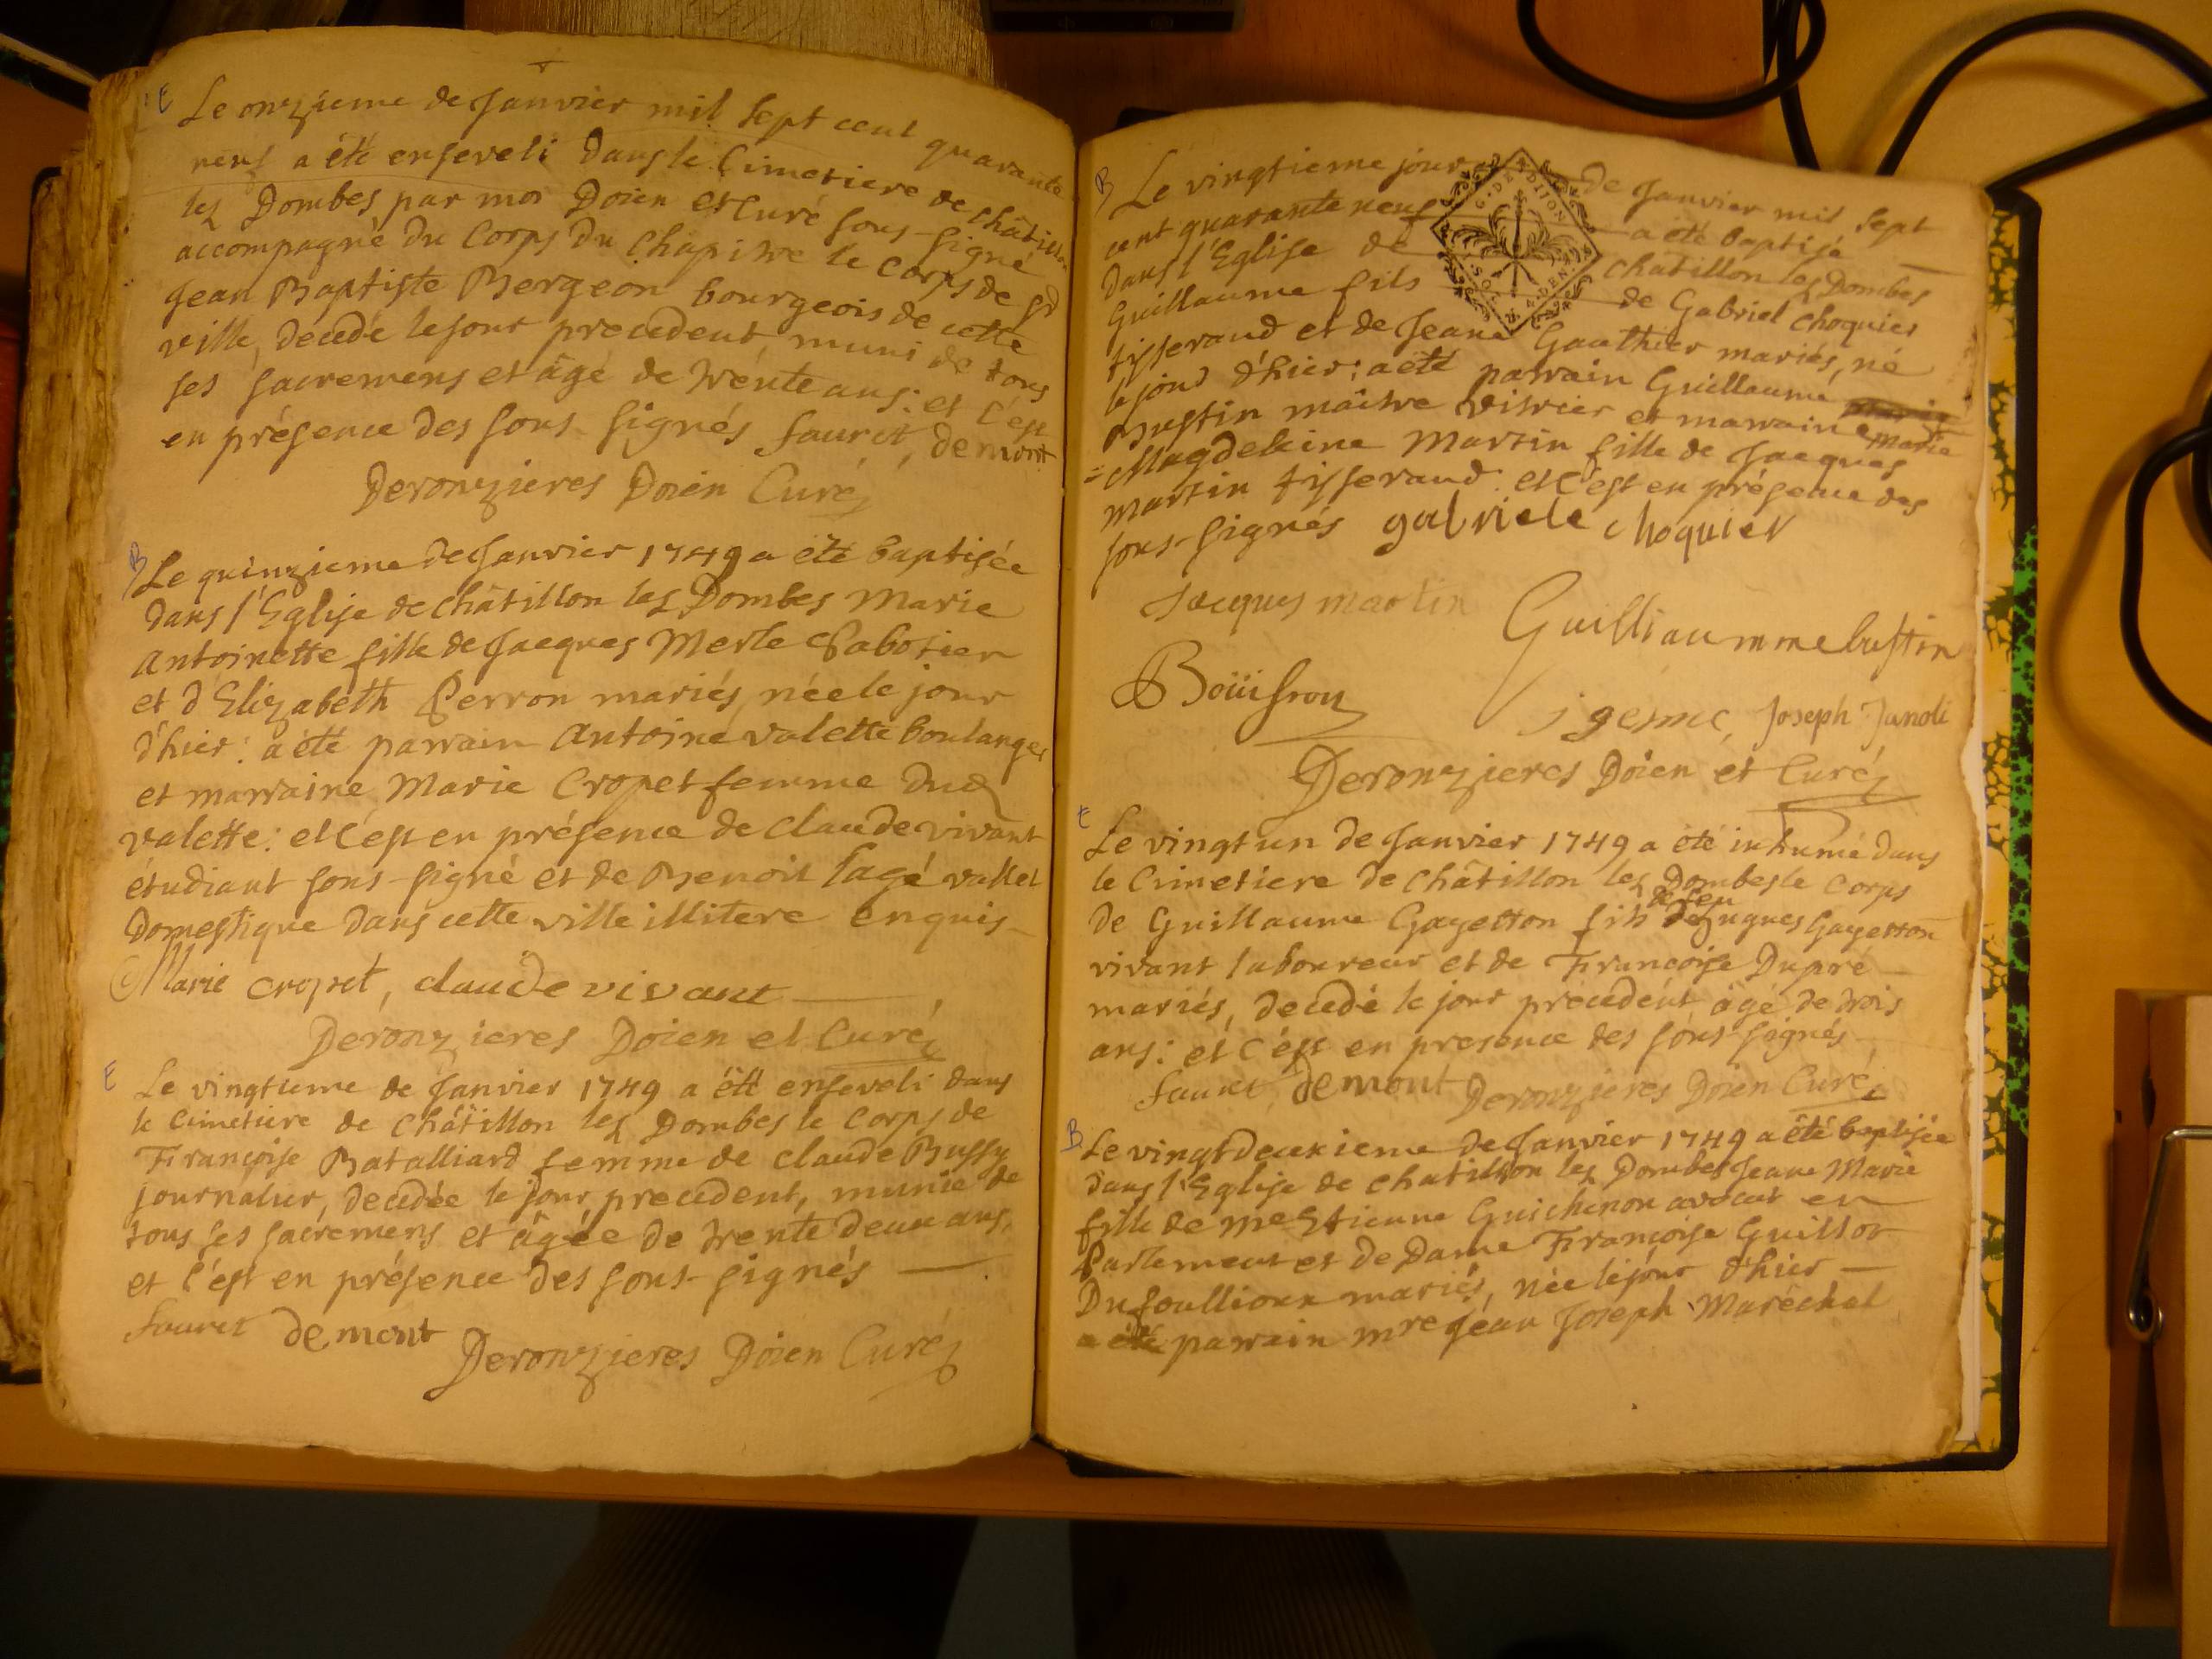 E
Le onzieme de Janvier mil sept cent quarante
neuf a été enseveli dans le Cimetiere de châtillon
les Dombes par moi Doien et Curé sous-signé
accompagné du Corps du Chapitre le corps de sr
Jean Baptiste Bergeon bourgeois de cette
ville, decedé le jour precedent muni de tous
ses sacremens et âgé de trente ans: et c'est
en présence des sous signés fauret, demont
Deronzieres Doien Curé
B
Le quinzieme de Janvier 1749 a été baptisée
dans l'Eglise de châtillon les Dombes Marie
antoinette fille de Jacques Merle Sabotier
et d'Elizabeth Perron mariés, née le jour
d'hier: a été parrain antoine valette boulanger
et marraine Marie Cropet femme dud
valette: et c'est en présence de claude vivant
étudiant sous-signé et de Benoit sagé vallet
domestique dans cette ville illitere enquis
Marie cropet, claude vivant
Deronzieres Doien et Curé
E
Le vingtieme de Janvier 1749 a été enseveli dans
le cimetiere de châtillon les Dombes le corps de
Françoise Batalliard femme de claude Bussy
journalier, decedée le jour precedent, munie de
tous ses sacremens et âgée de trente deux ans,
et c'est en présence des sous-signés
fauret demont
Deronzieres Doien Curé
B
Le vingtieme jour de Janvier mil sept
cent quarante neuf a été baptisé
dans l'Eglise de chatillon les Dombes
Guillaume fils de Gabriel choquier
tisserand et de Jeane Gauthier mariés, né
le jour d'hier: a été parrain Guillaume
Bustin maître vitrier et marraine Marie
=Magdeleine Martin fille de Jacques
martin tisserand: et c'est en présence des
sous-signés gabriele choquier
Jacques martin
Guilliaumme bustin
Boüisson
Joseph Janoli
Deronzieres Doien et Curé
E
Le vingt un de Janvier 1749 a été inhumé dans
le Cimetiere de châtillon les Dombes le corps
de feu
de Guillaume Gayetton fils hugues Gayetton
vivant laboureur et de Françoise Dupré
mariés, decedé le jour précedent âgé de trois
ans: et c'est en presence des sous-signés
fauret, demont Deronzieres Doien Curé
B
Le vingt deuxieme de Janvier 1749 a été baptisée
dans l'Eglise de chatillon les Dombes Jeane Marie
fille de me Etienne Guichenon avocat en
Parlement et de Dame Françoise Guillot
Dufoullioux mariés, née le jour d'hier
a été parrain mre Jean Joseph Maréchal